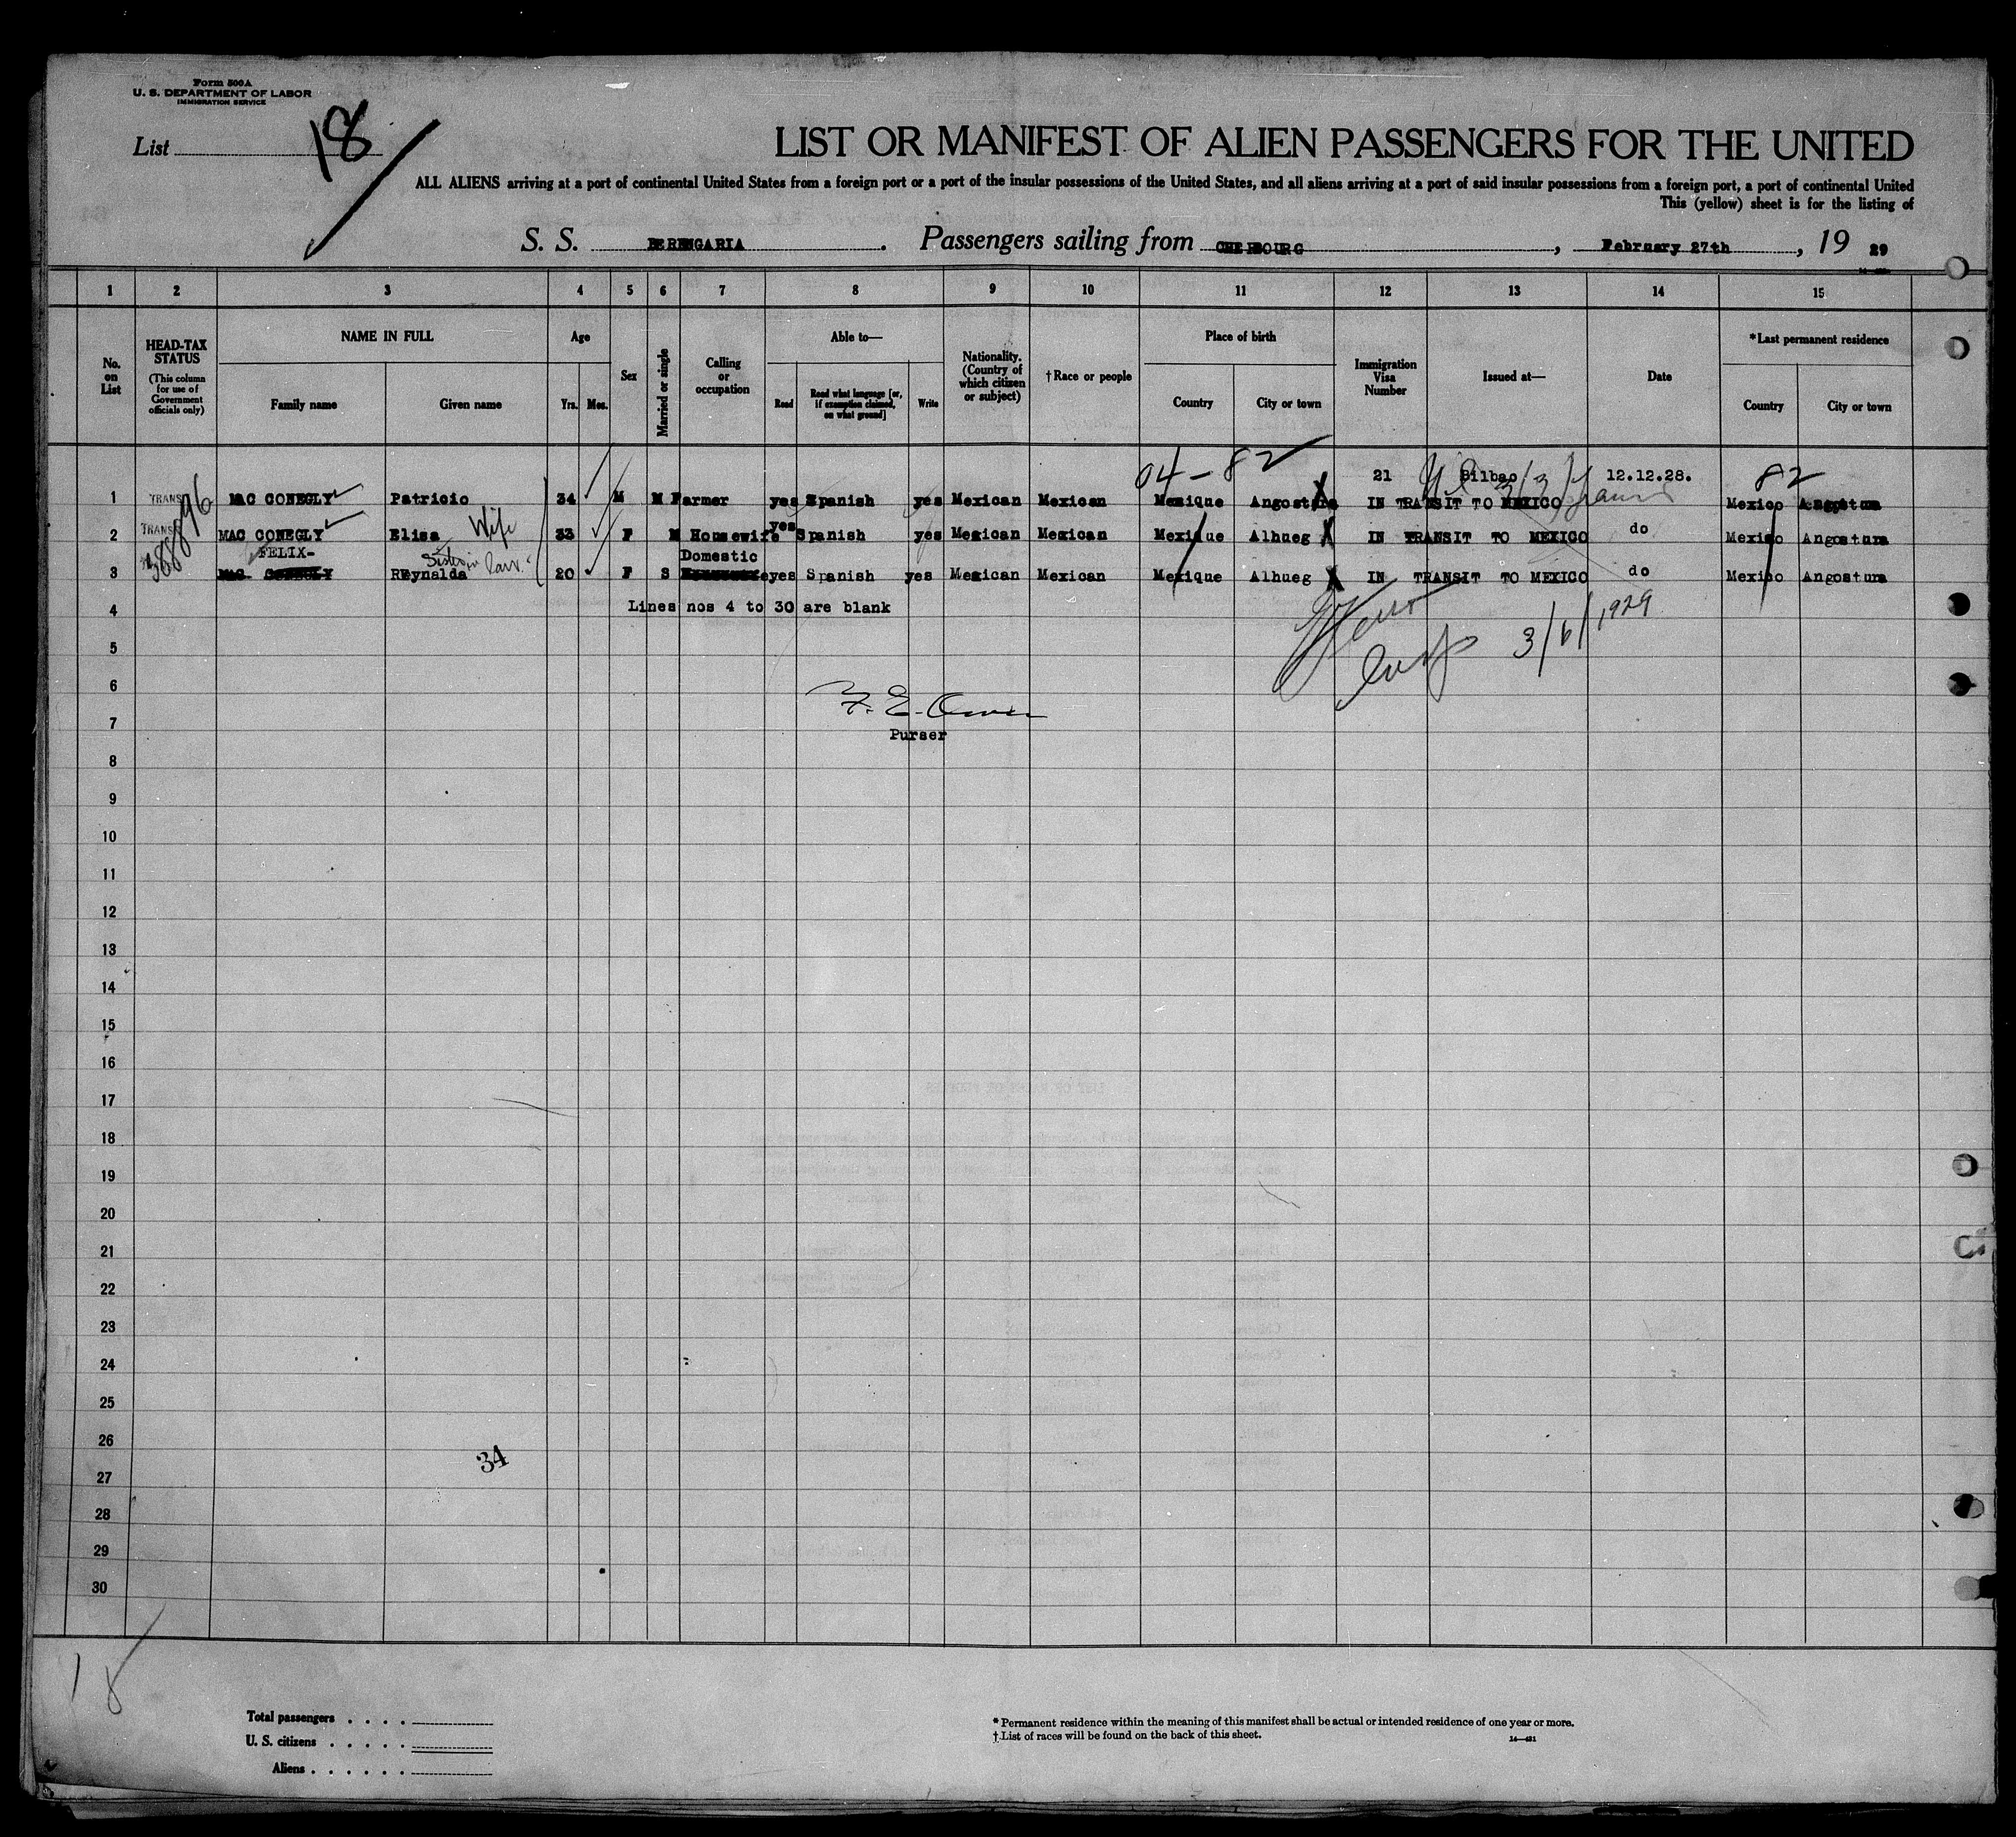 Form 500A
U. S. DEPARTMENT OF LABOR
IMMIGRATION SERVICE
List 18
LIST OR MANIFEST OF ALIEN PASSENGERS FOR THE UNITED
ALL ALIENS arriving at a port of continental United States from a foreign port or a port of the insular possessions of the United States, and all aliens arriving at a port of said insular possessions from a foreign port, a port of continental United
This (yellow) sheet is for the listing of
S. S. BERENGARIA. Passengers sailing from CHERBOURG, February 27th, 19 29
1 2 3 4 5 6 7 8 9 10 11 12 13 14 15
No. on List
HEAD-TAX STATUS (This column for use of Government officials only)
NAME IN FULL
Family name
Given name
Age
Yrs. Mos.
Sex
Married or single
Calling or occupation
Able to—
Read
Read what language [or, if exemption claimed, on what ground]
Write
Nationality. (Country of which citizen or subject)
† Race or people
Place of birth
Country
City or town
Immigration Visa Number
Issued at—
Date
* Last permanent residence
Country
City or town
04 - 82
21 Bilbao 12.12.28. 82
1 TRANS MAC CONEGLY Patricio 34 M M Farmer yes Spanish yes Mexican Mexican Mexique Angostura IN TRANSIT TO MEXICO Mexico Angostura
2 TRANS MAC CONEGLY Elisa Wife 33 F M Housewife yes Spanish yes Mexican Mexican Mexique Alhueg IN TRANSIT TO MEXICO do Mexico Angostura
FELIX- Sister in law Domestic
3 MAC CONEGLY Reynalda 20 F S yes Spanish yes Mexican Mexican Mexique Alhueg IN TRANSIT TO MEXICO do Mexico Angostura
4 Lines nos 4 to 30 are blank
3/6/1929
5
6
F. E. Owen
7
Purser
8
9
10
11
12
13
14
15
16
17
18
19
20
21
22
23
24
25
26
34
27
28
29
30
18
Total passengers . . . .
U. S. citizens . . . . .
Aliens . . . . . .
* Permanent residence within the meaning of this manifest shall be actual or intended residence of one year or more.
† List of races will be found on the back of this sheet.
14—431